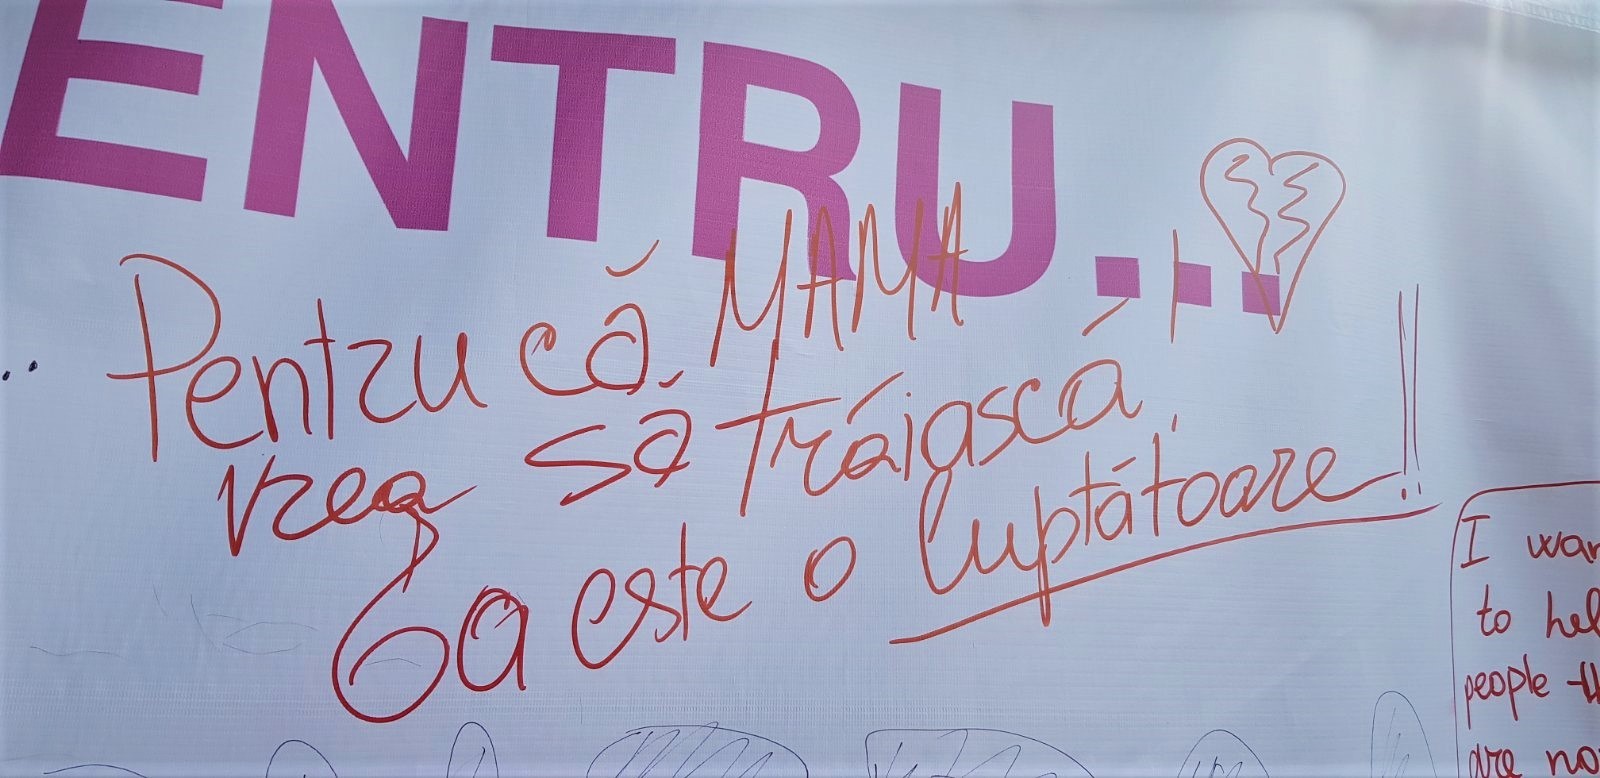 ENTRU...
Pentru că MAMA
vrea să trăiască!
Ea este o luptătoare!!
I wan
to hel
people th
are no